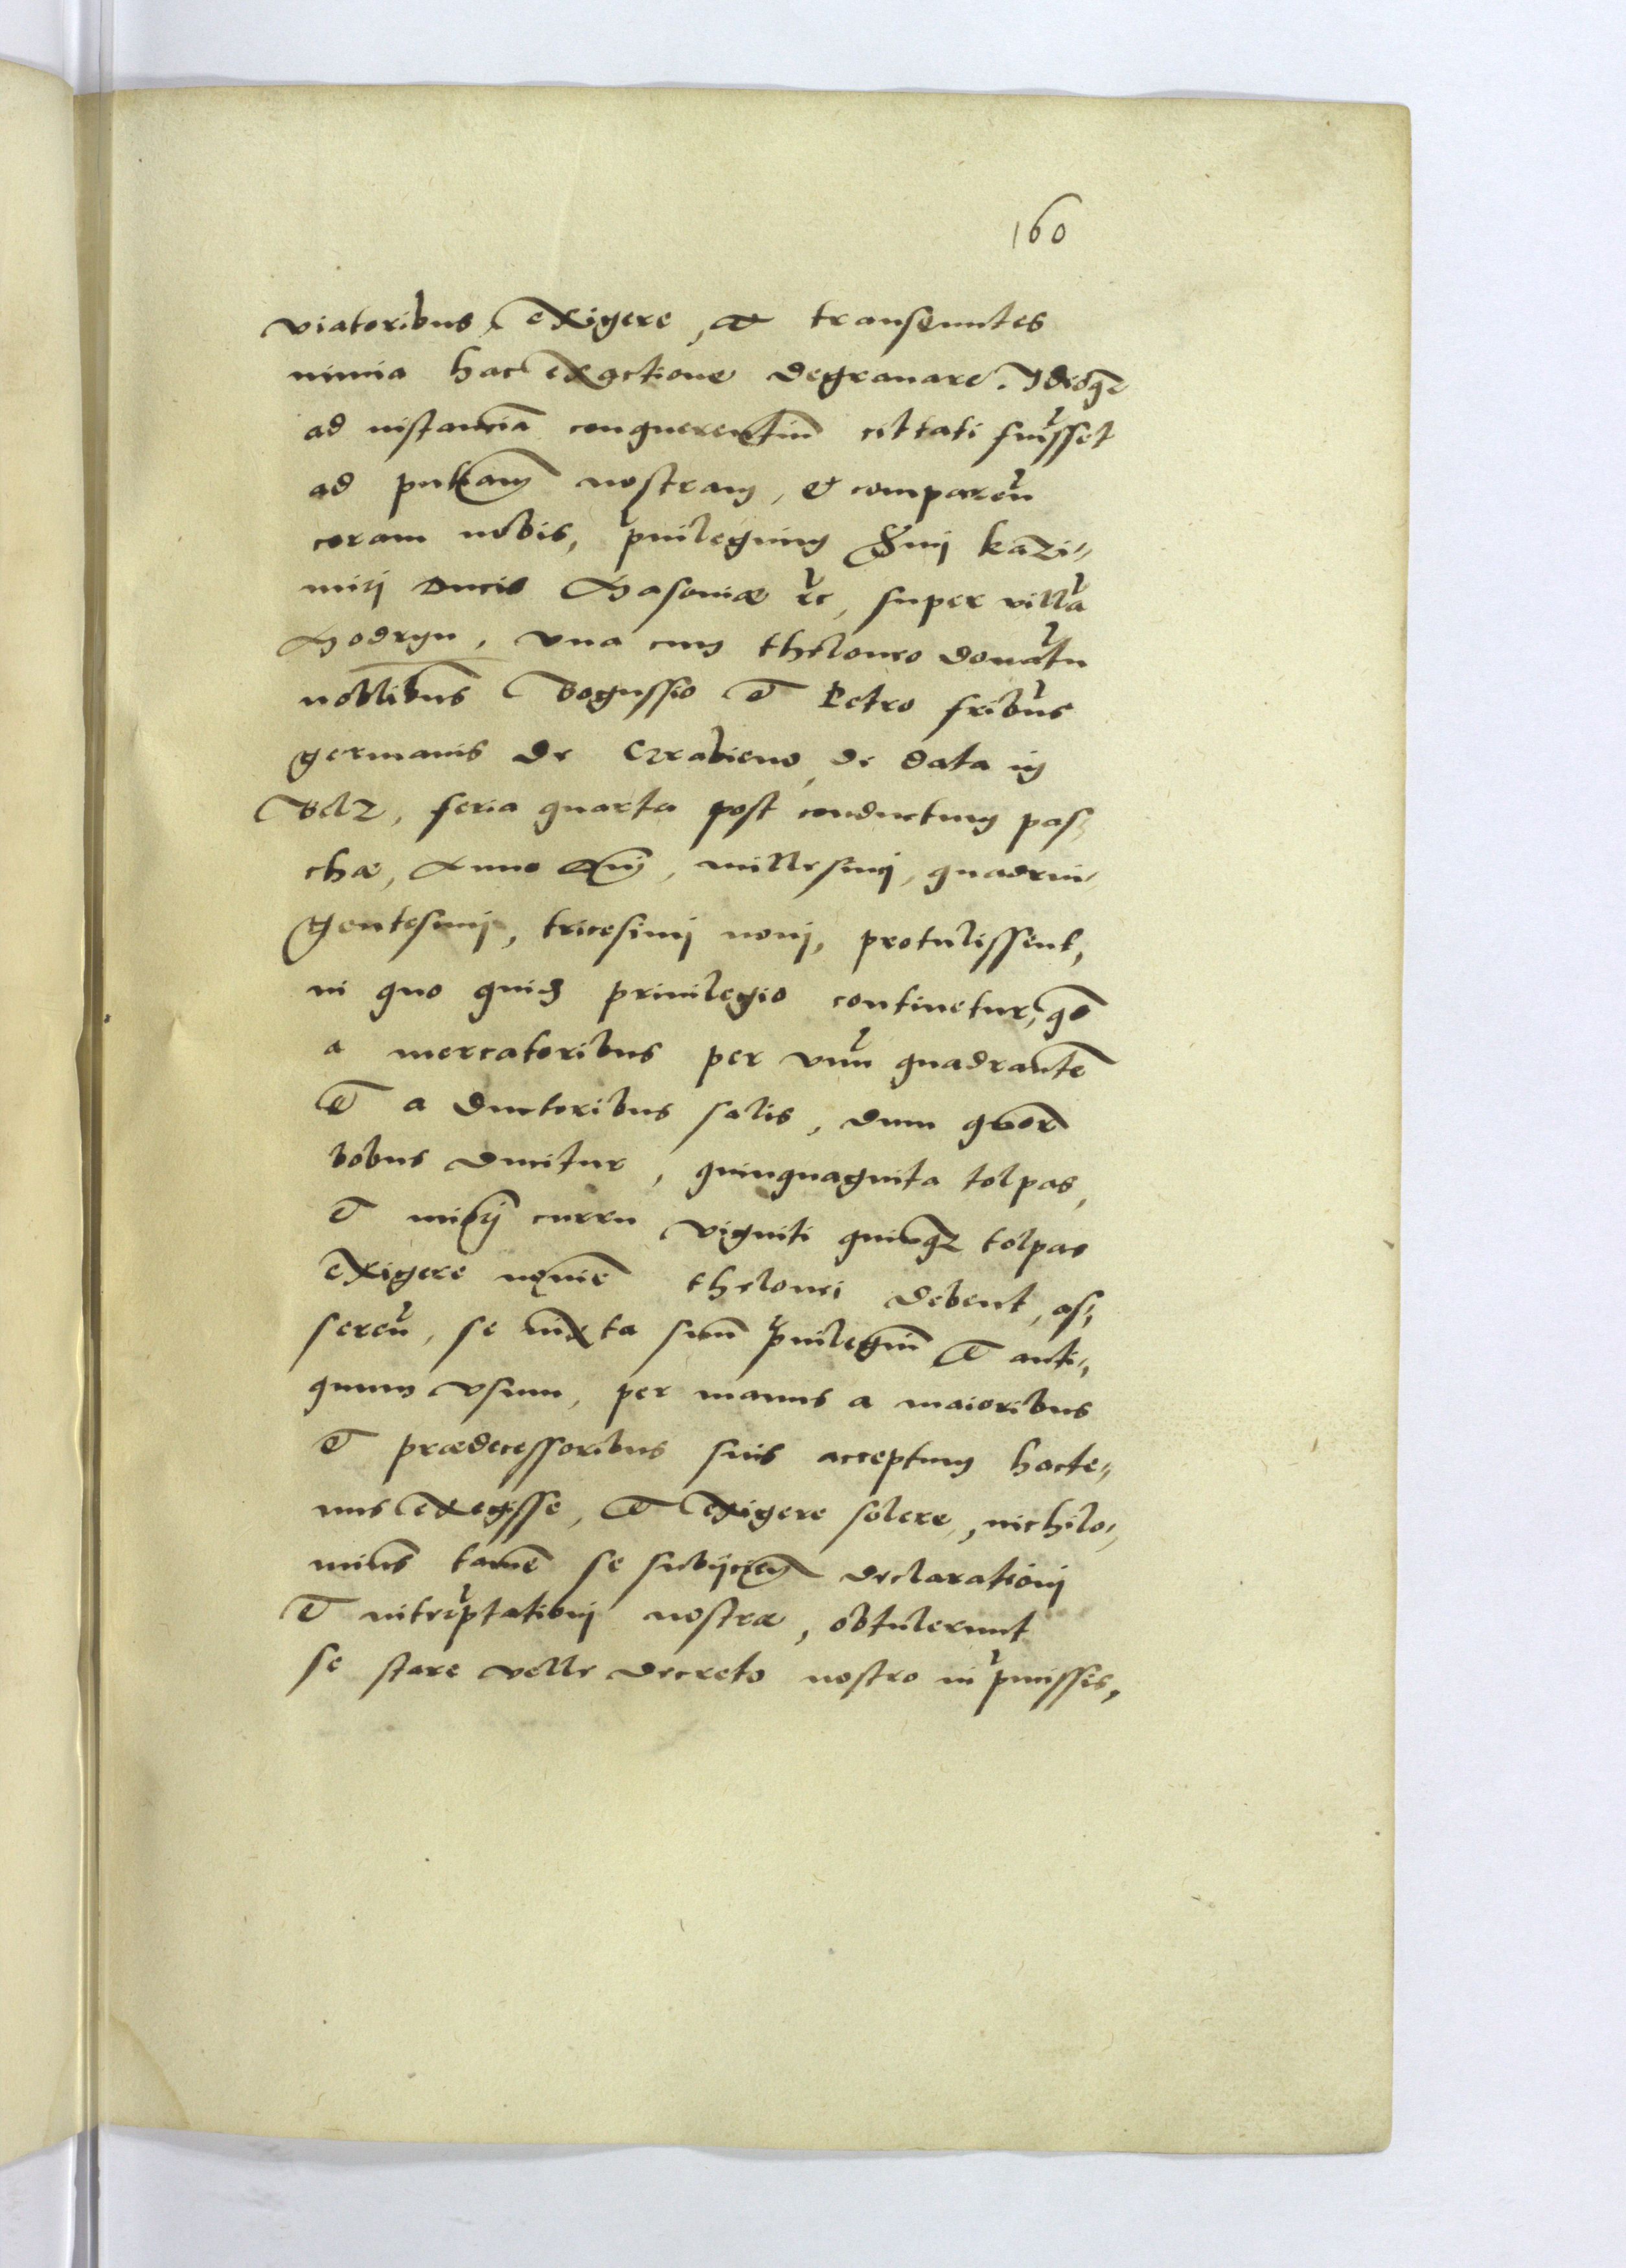 160
viatoribus, exigere, et transeuntes
nimia hac exactione degrauare. Ideoq3
ad instanciã conquerentiũ cittati fuissēt
ad pn̄tiam nostram, et comparen̄
coram nobis, p̄uilegium Dn̄i Kazi-
miri Ducis Masouiæ etc, super villã
Modryn, vna cum theloneo donatũ
nobilibus Bogussio et Petro fr̄ibus
germanis de Czabieno, de data in
Belz, feria quarta post conductum pas-
chæ, Anno Dn̄i, millesimj, quadrin-
gentesimj, tricesimj nonj, protulissent,
in quo quidē priuilegio continetur, qd̄
a mercatoribus per vnũ quadrantē
et a ductoribus salis, dum q̄tuor
bobus ducitur, quinquaginta tolpas,
et minorj curru viginti quinq3 tolpas
exigere noīe thelonei debent, as-
seren̄, se iuxta suũ p̄uilegiũ et anti-
quum vsum, per manus a maioribus
et prædecessoribus suis acceptum hacte-
nus exegisse, et exigere solere, nichilo-
minus tamē se subijcien̄ declarationj
et interp̄tationj nostræ, obtulerunt
se stare velle decreto nostro in p̄missis,